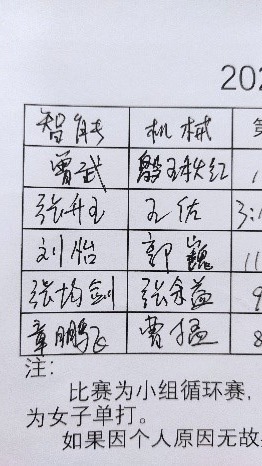 202
智能 机械 第
曾武 殷球红 1
张利王 王佑 3:
刘怡 郭巍 11
张均剑 张余益 9
章鹏飞 曹猛 8
注：
比赛为小组循环赛，
为女子单打。
如果因个人原因无故